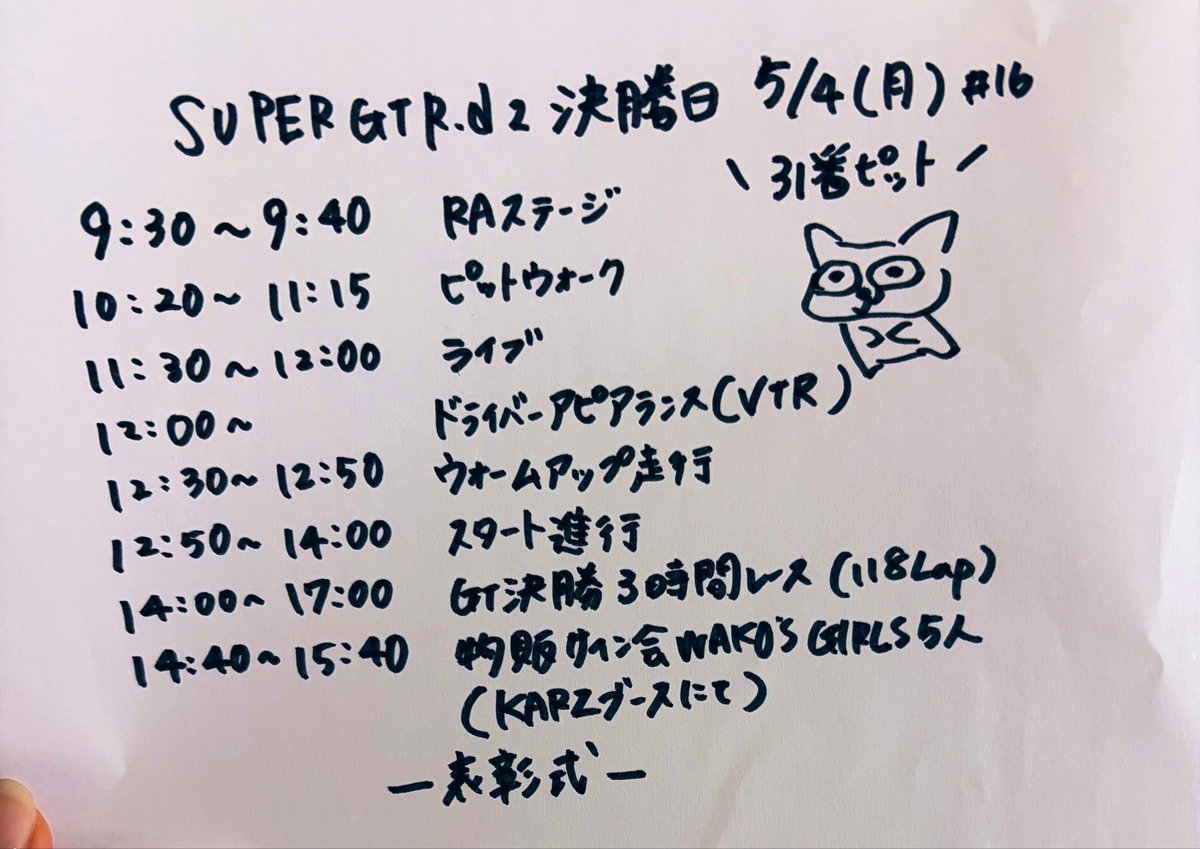 SUPER GT R.d2 決勝日 5/4(月) #16
\ 31番ピット /
9:30～9:40 RAステージ
10:20～11:15 ピットウォーク
11:30～12:00 ライブ
12:00～ ドライバーアピアランス(VTR)
12:30～12:50 ウォームアップ走行
12:50～14:00 スタート進行
14:00～17:00 GT決勝3時間レース(118Lap)
14:40～15:40 物販サイン会WAKO'S GIRLS5人
(KARZブースにて)
ー表彰式ー